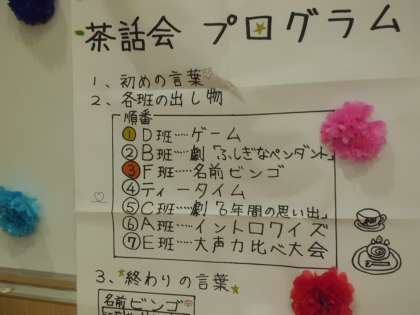 茶話会 プログラム
1、初めの言葉
2、各班の出し物
順番
①D班……ゲーム
②B班……劇「ふしぎなペンダント」
③F班……名前ビンゴ
④ティータイム
⑤C班……劇「6年間の思い出」
⑥A班……イントロクイズ
⑦E班……大声力比べ大会
3、終わりの言葉
名前ビンゴ